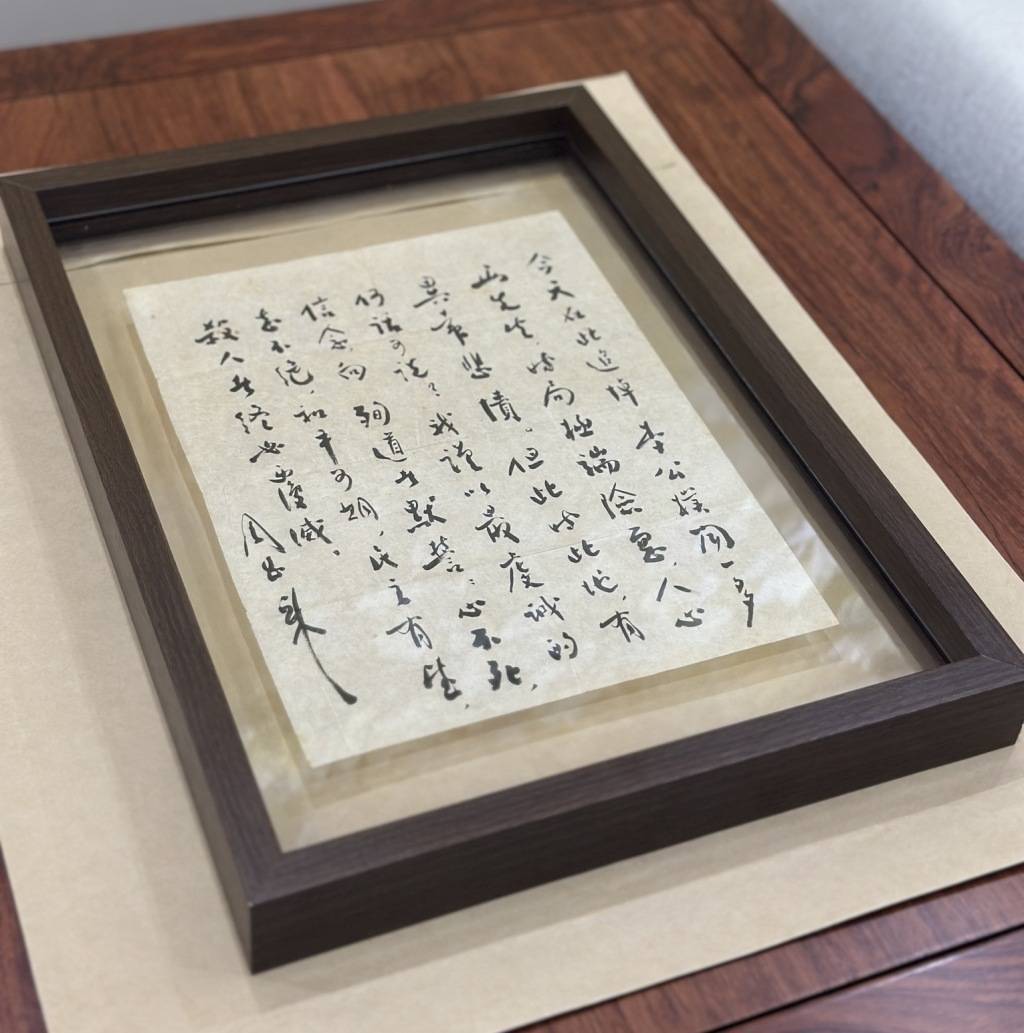 今天在此追悼李公樸聞一多
两先生，时局極端險惡，人心
異常悲憤。但此时此地，有
何話可说？我謹以最虔誠的
信念，向殉道者默誓：心不死，
志不绝，和平可期，民主有望，
殺人者终必覆滅。
周恩来